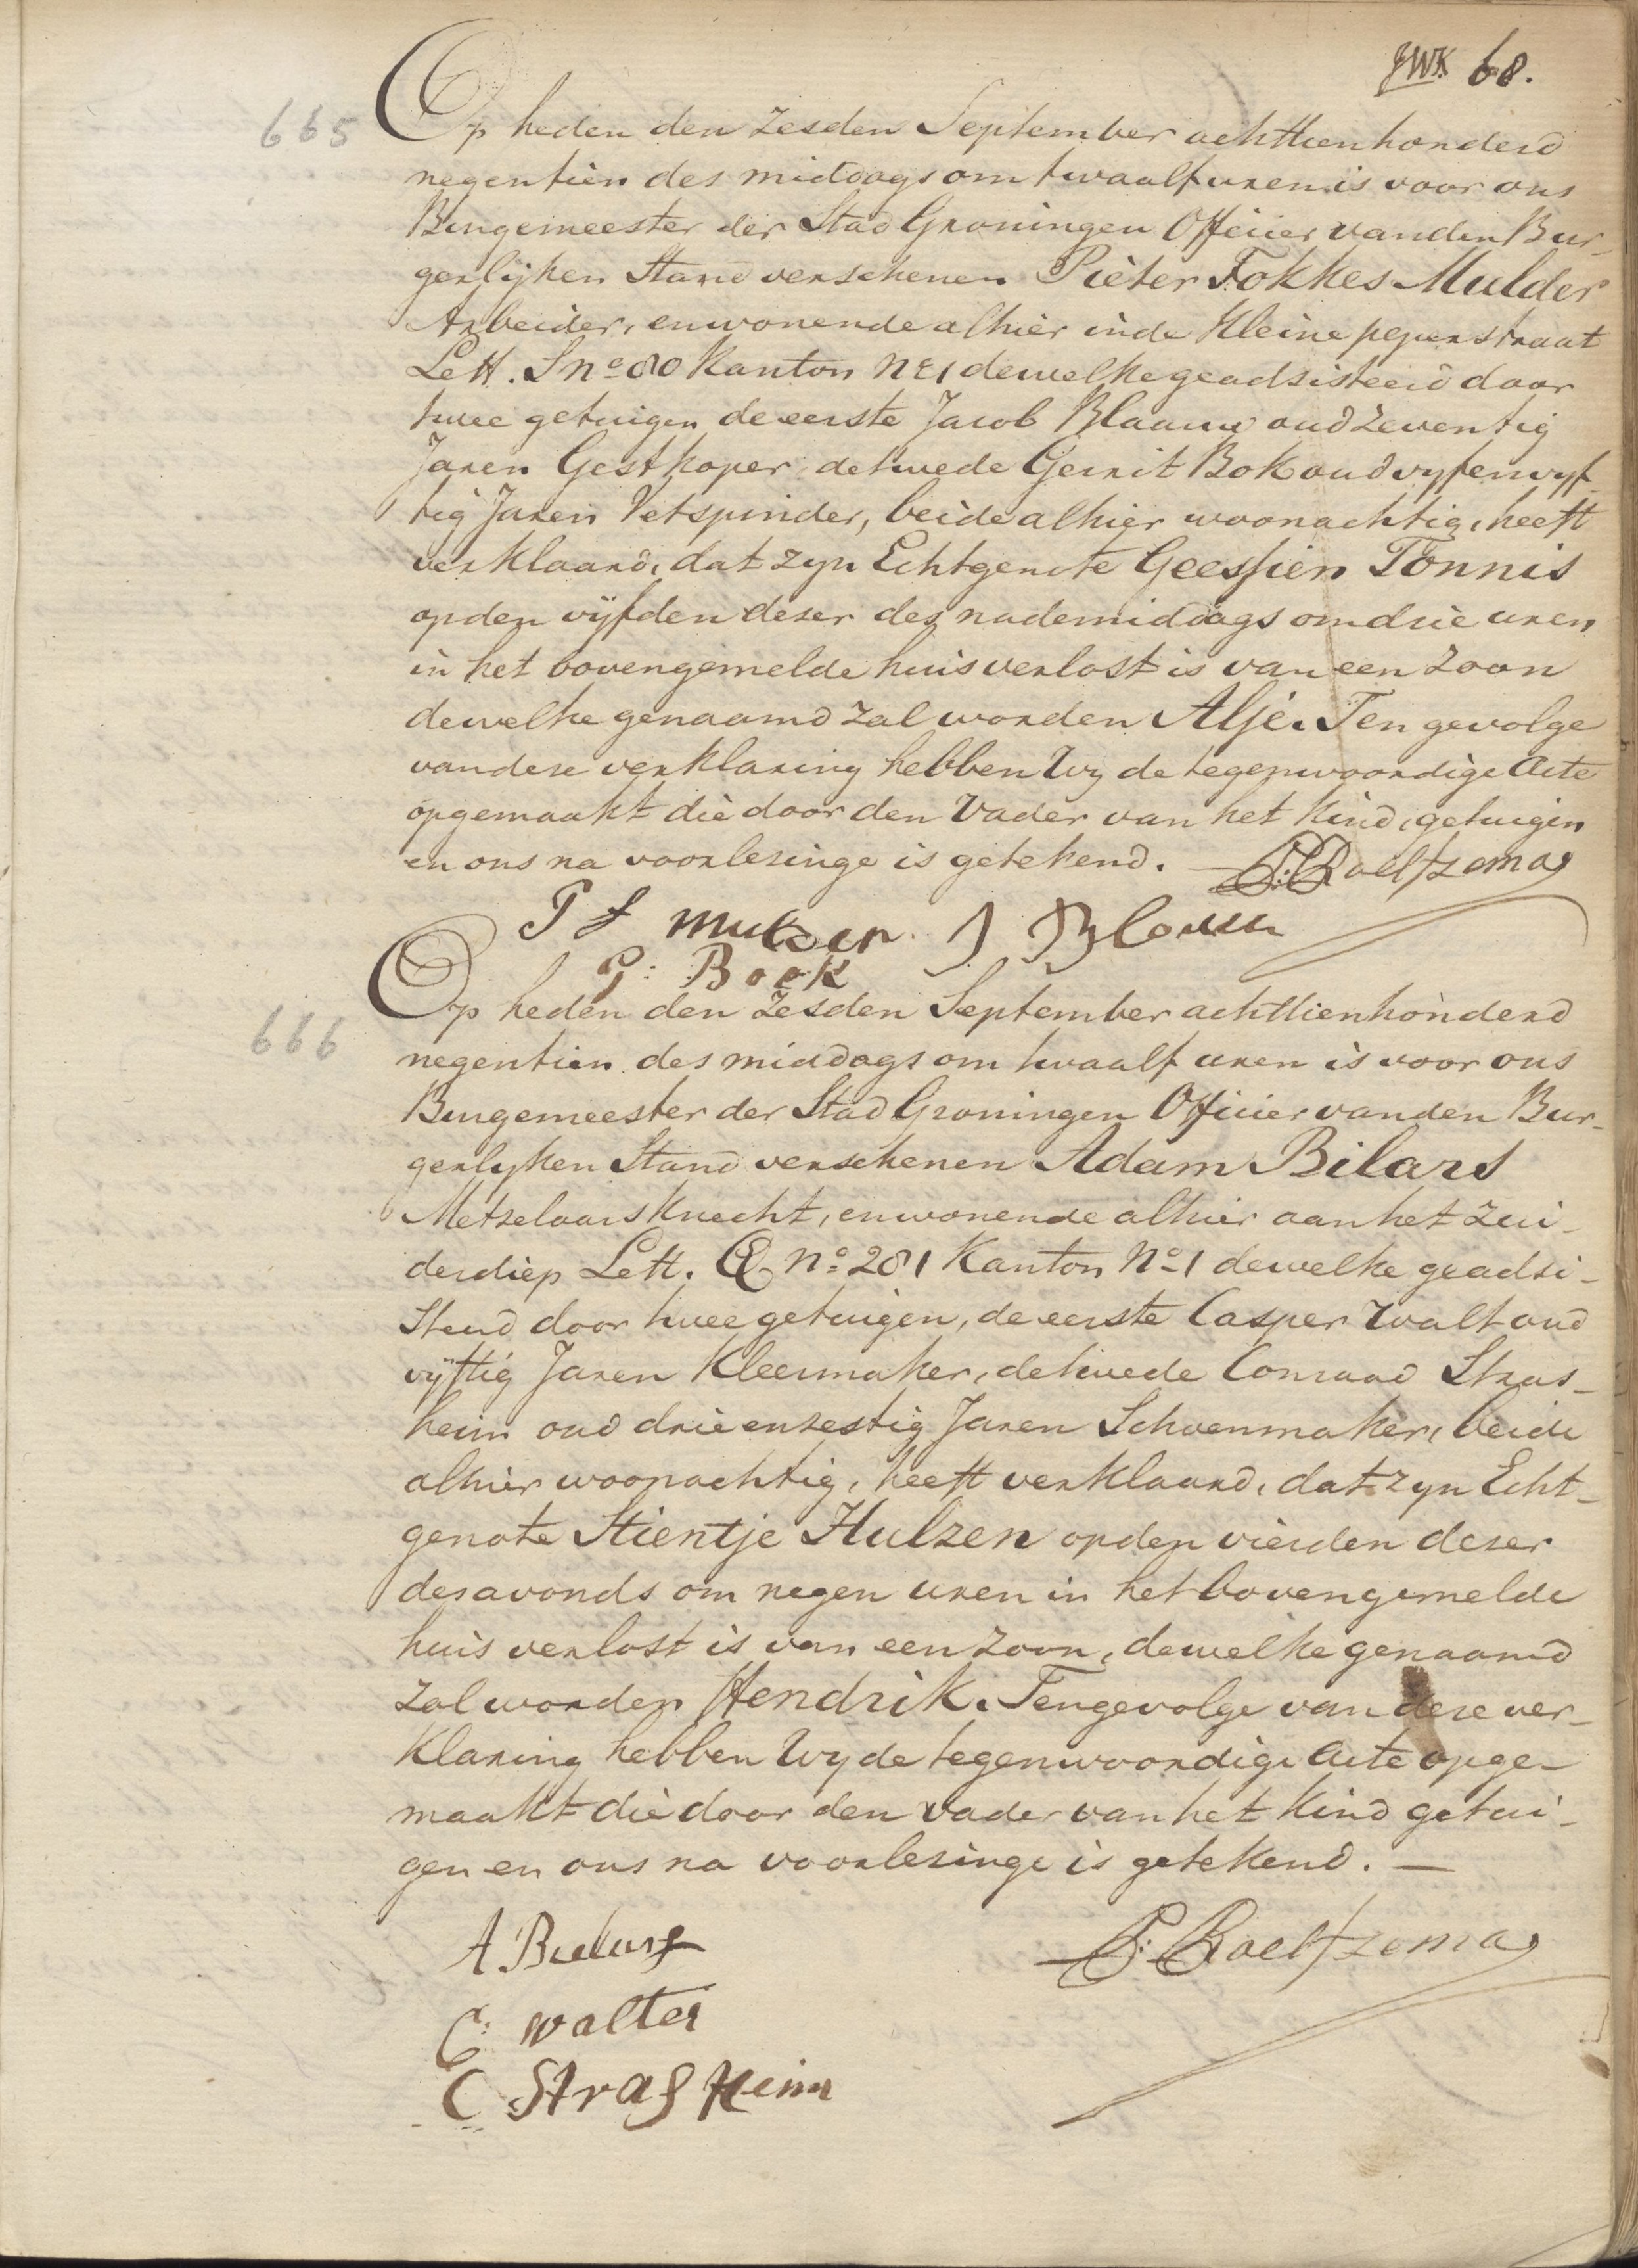 JWK 68.
665
Op heden den zesden September achttienhonderd
negentien des middags om twaalf uren is voor ons
Burgemeester der Stad Groningen Officier van den Bur-
gerlijken Stand verschenen Pieter Fokkes Mulder
Arbeider, en wonende alhier in de Kleine peperstraat
Lett. S no 80 Kanton No 1 dewelke geadsisteerd door
twee getuigen de eerste Jacob Blaauw oud zeventig
Jaren Gestkoper, de twede Gerrit Bok oud vyfenvyf-
tig Jaren Vetspinder, beide alhier woonachtig, heeft
verklaard, dat zyn Echtgenote Geessien Tonnis
op den vijfden dezer des nademiddags om drie uren
in het bovengemelde huis verlost is van een zoon
dewelke genaamd zal worden Alje. Ten gevolge
van deze verklaring hebben Wy de tegenwoordige Acte
opgemaakt die door den Vader van het Kind, getuigen
en ons na voorlezinge is getekend. P: Roeltzema
P f mulder J Blauw
G: Book
666
Op heden den zesden September achttienhonderd
negentien des middags om twaalf uren is voor ons
Burgemeester der Stad Groningen Officier van den Bur-
gerlyken Stand verschenen Adam Bilars
Metzelaars Knecht, en wonende alhier aan het Zui-
derdiep Lett. Q no: 281 Kanton No 1 dewelke geadsi-
steerd door twee getuigen, de eerste Casper Walt oud
vijftig Jaren Kleermaker, de twede Conraad Stras-
heim oud drie en zestig Jaren Schoenmaker, beide
alhier woonachtig, heeft verklaard, dat zyn Echt-
genote Stientje Hulzen op den vierden dezer
des avonds om negen uren in het bovengemelde
huis verlost is van een zoon, dewelke genaamd
zal worden Hendrik. Ten gevolge van deze ver-
klaring hebben Wy de tegenwoordige Acte opge-
maakt die door den vader van het Kind getui-
gen en ons na voorlezinge is getekend. —
A Bielars P: Roeltzema
C: walter
C StrasHeim